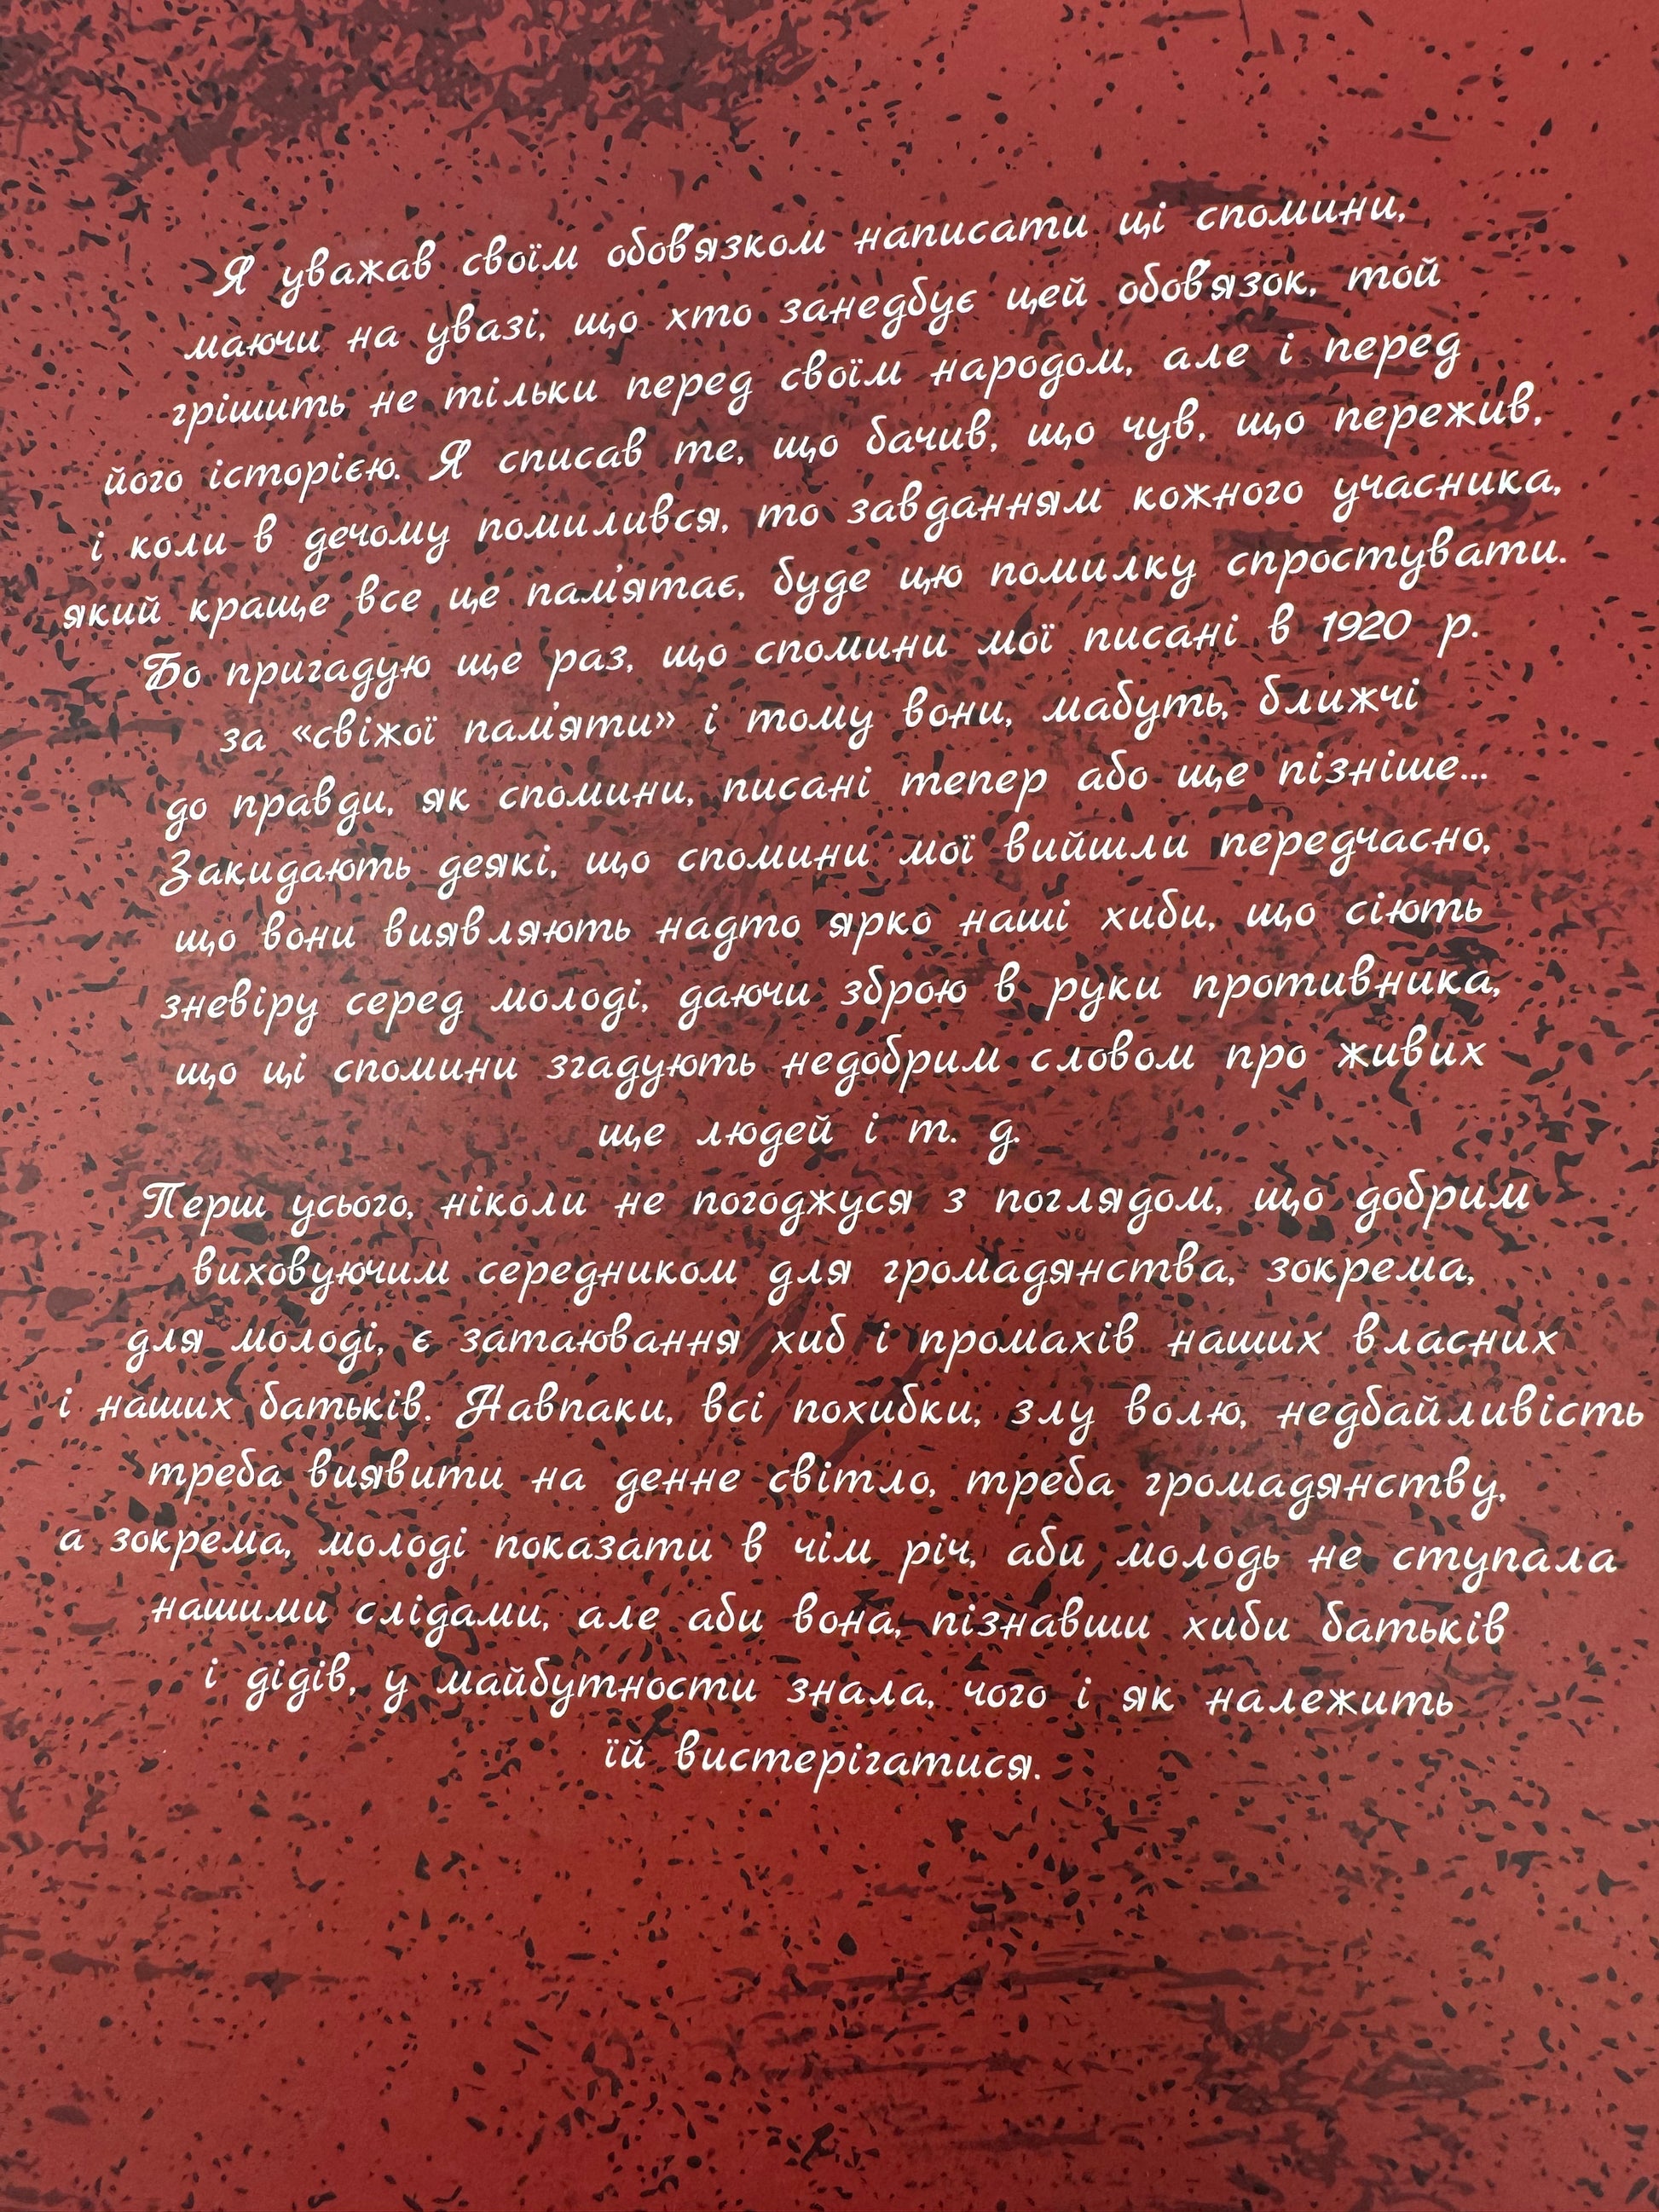 Я уважав своїм обов'язком написати ці спомини,
маючи на увазі, що хто занедбує цей обов'язок, той
грішить не тільки перед своїм народом, але і перед
його історією. Я списав те, що бачив, що чув, що пережив,
і коли в дечому помилився, то завданням кожного учасника,
який краще все це пам'ятає, буде цю помилку спростувати.
Бо пригадую ще раз, що спомини мої писані в 1920 р.
за «свіжої пам'яти» і тому вони, мабуть, ближчі
до правди, як спомини, писані тепер або ще пізніше...
Закидають деякі, що спомини мої вийшли передчасно,
що вони виявляють надто ярко наші хиби, що сіють
зневіру серед молоді, даючи зброю в руки противника,
що ці спомини згадують недобрим словом про живих
ще людей і т. д.
Перш усього, ніколи не погоджуся з поглядом, що добрим
виховуючим середником для громадянства, зокрема,
для молоді, є затаювання хиб і промахів наших власних
і наших батьків. Навпаки, всі похибки, злу волю, недбайливість
треба виявити на денне світло, треба громадянству,
а зокрема, молоді показати в чім річ, аби молодь не ступала
нашими слідами, але аби вона, пізнавши хиби батьків
і дідів, у майбутности знала, чого і як належить
їй вистерігатися.